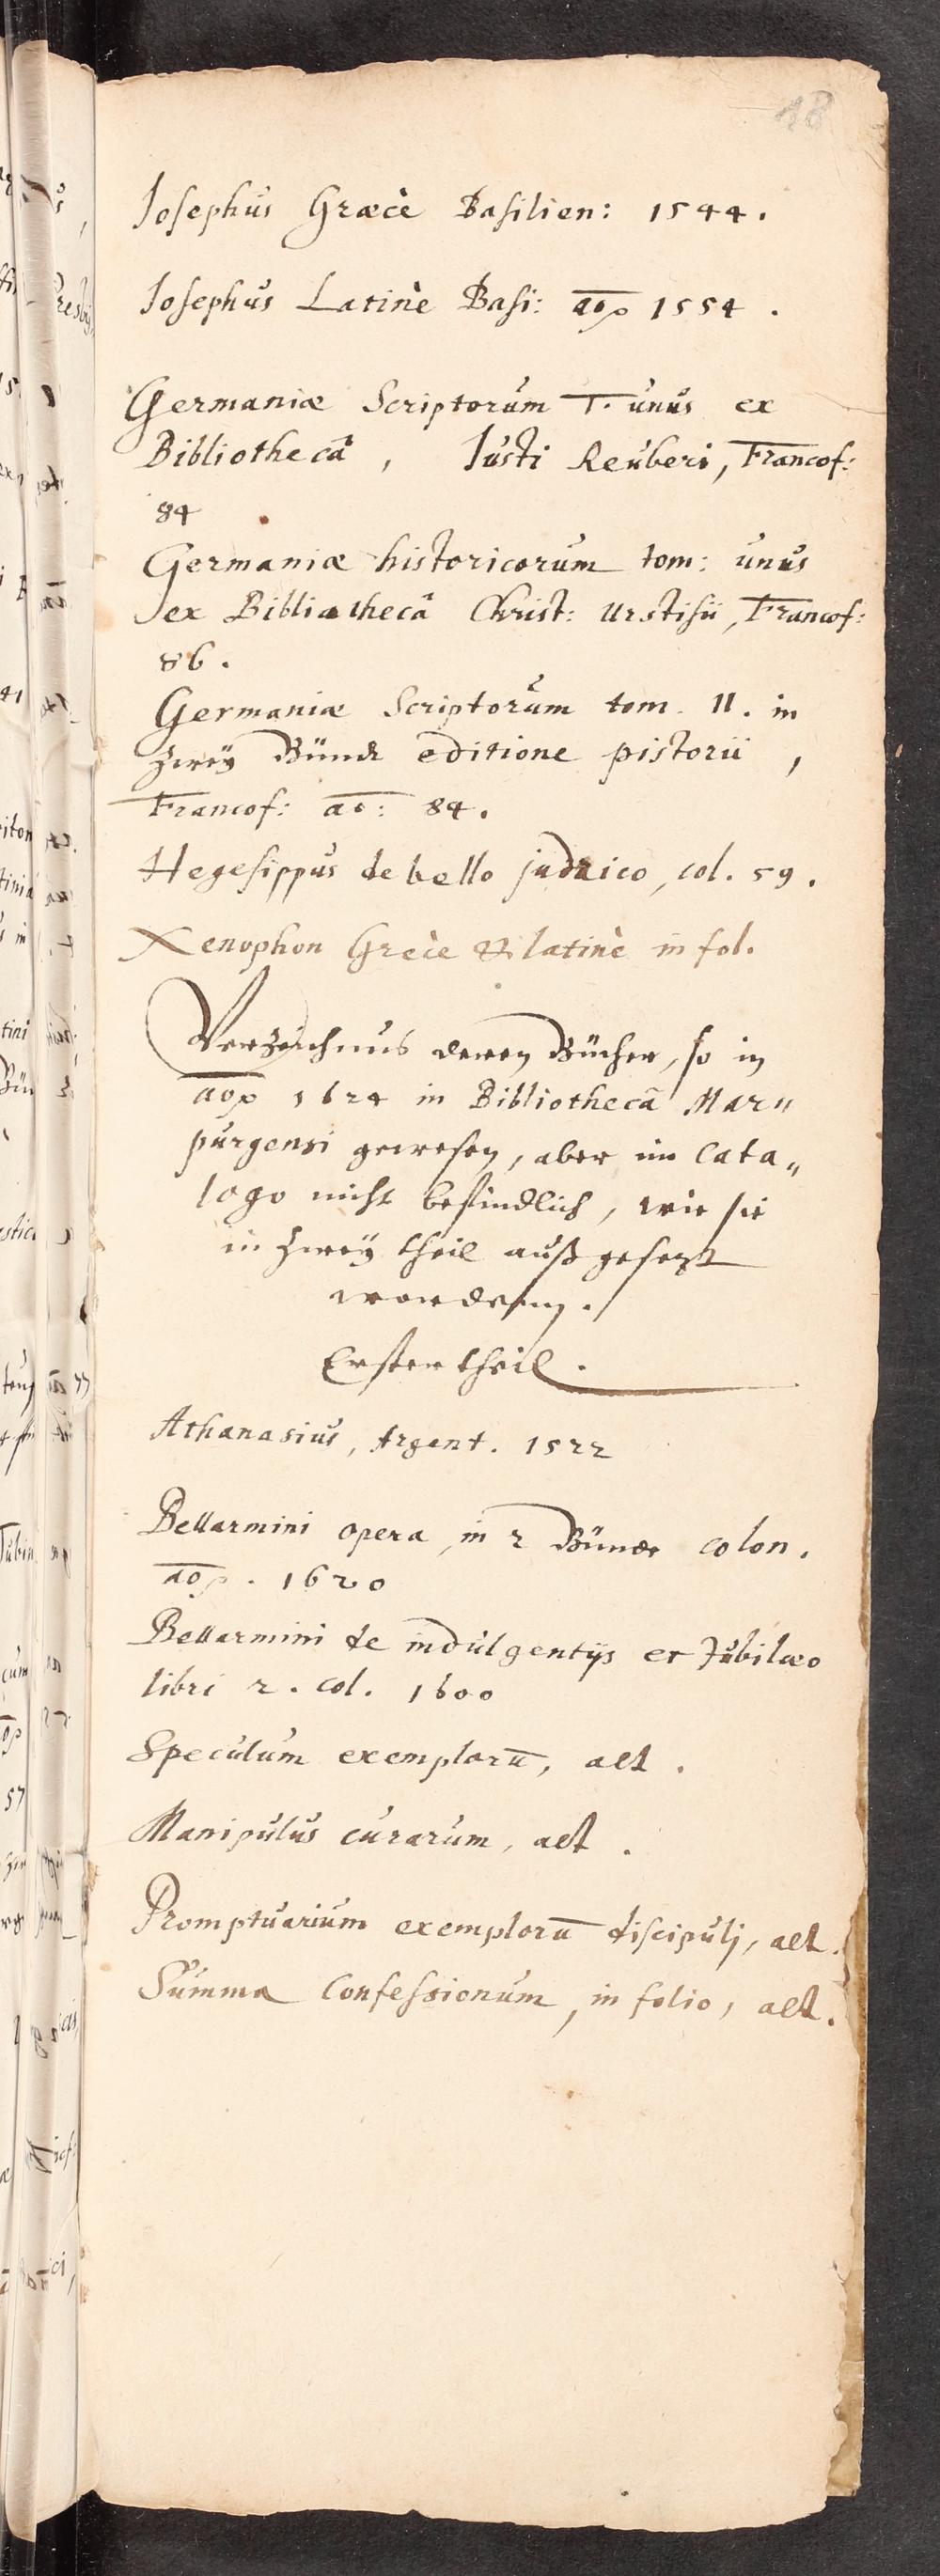 18
Josephus Græcè Basilien: 1544.
Josephus Latinè Basi: ao 1554.
Germaniæ Scriptorum T. unus ex
Bibliothecâ, Justi Reuberi, Francof:
84
Germaniæ historicorum tom: unus
ex Bibliothecâ Christ: Urstisii, Francof:
86.
Germaniæ Scriptorum tom. II. in
zwey Bünde editione pistorii,
Francof: ao: 84.
Hegesippus de bello judaico, col. 59.
Xenophon Grecè & latinè in fol.
Verzeichnus deren Bücher, so in
ao 1624 in Bibliothecâ Mar„
purgensi gewesen, aber im Cata„
logo nicht befindlich, wie sie
in zwey theil außgesezt
worden.
Erster theil.
Athanasius, Argent. 1522
Bellarmini opera, in 2 Bünde colon.
ao. 1620
Bellarmini de indulgentijs et Jubilæo
libri 2. col. 1600
Speculum exemplorū, alt.
Manipulus curarum, alt.
Promptuarium exemplorū discipulj, alt.
Summa Confessionum, in folio, alt.